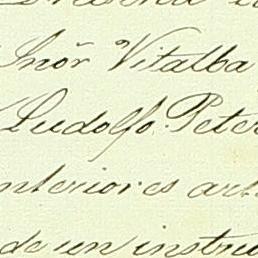 Snõr Vitalba
Ludolfo Peter
nteriores art
de un instru